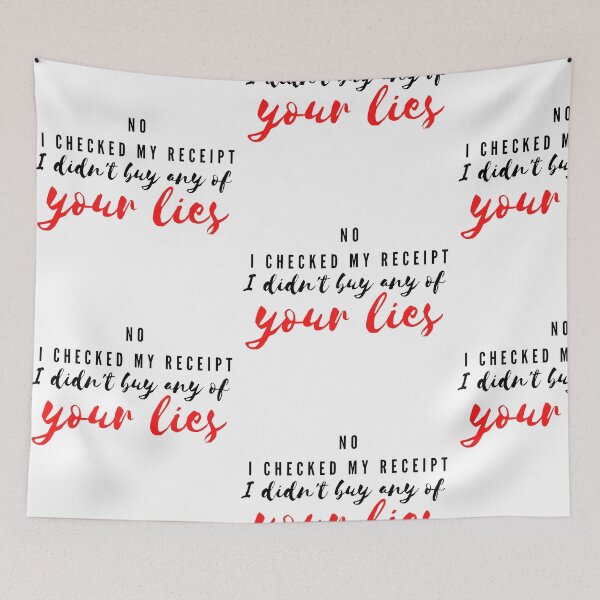 NO
I CHECKED MY RECEIPT
I didn't buy any of
your lies
NO
I CHECKED MY RECEIPT
I didn't buy any of
your lies
I didn't buy any of
your lies
NO
I CHECKED MY RECEIPT
I didn't buy any of
your lies
NO
I CHECKED MY RECEIPT
I didn't buy any of
your lies
NO
I CHECKED MY
I didn't
your
NO
I CHECKED MY
I didn't
your